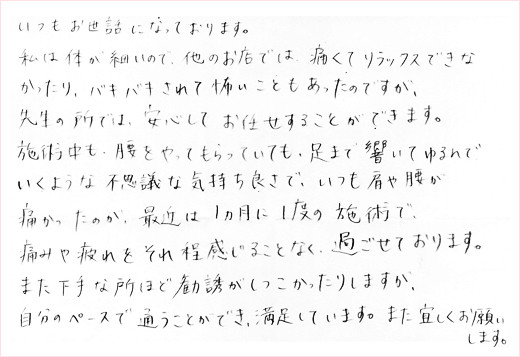 いつもお世話になっております。
私は体が細いので、他のお店では、痛くてリラックスできな
かったり、バキバキされて怖いこともあったのですが、
先生の所では、安心してお任せすることができます。
施術中も、腰をやってもらっていても、足まで響いてゆるんで
いくような不思議な気持ち良さで、いつも肩や腰が
痛かったのが、最近は1ヵ月に1度の施術で、
痛みや疲れをそれ程感じることなく、過ごせております。
また下手な所ほど勧誘がしつこかったりしますが、
自分のペースで通うことができ、満足しています。また宜しくお願い
します。